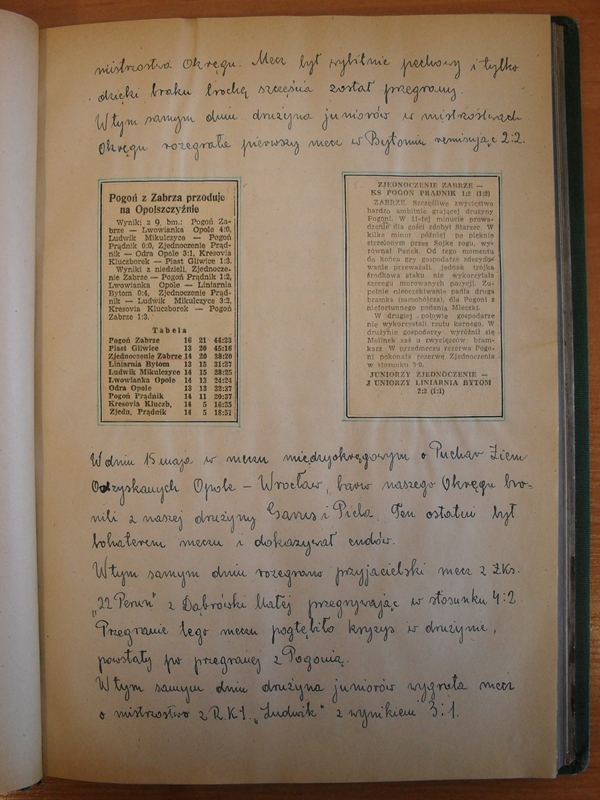 mistrzostwa Okręgu. Mecz był wybitnie pechowy i tylko
dzięki braku trochę szczęścia został przegrany.
W tym samym dniu drużyna juniorów w mistrzostwach
Okręgu rozegrała pierwszy mecz w Bytomiu remisując 2:2.
Pogoń z Zabrza przoduje
na Opolszczyźnie
Wyniki z 9. bm.: Pogoń Za-
brze — Lwowianka Opole 4:0,
Ludwik Mikulczyce — Pogoń
Prądnik 0:0, Zjednoczenie Prąd-
nik — Odra Opole 3:1, Kresovia
Kluczborek — Piast Gliwice 1:3.
Wyniki z niedzieli. Zjednocze-
nie Zabrze — Pogoń Prądnik 1:2,
Lwowianka Opole — Liniarnia
Bytom 0:4, Zjednoczenie Prąd-
nik — Ludwik Mikulczyce 3:2,
Kresovia Kluczborek — Pogoń
Zabrze 1:3.
Tabela
Pogoń Zabrze 16 21 44:23
Piast Gliwice 13 20 45:16
Zjednoczenie Zabrze 14 20 38:20
Liniarnia Bytom 13 15 31:27
Ludwik Mikulczyce 14 15 28:25
Lwowianka Opole 14 13 24:24
Odra Opole 13 13 22:37
Pogoń Prądnik 14 11 20:37
Kresovia Kluczb. 14 5 16:25
Zjedn. Prądnik 14 5 18:51
ZJEDNOCZENIE ZABRZE —
KS POGOŃ PRĄDNIK 1:2 (1:2)
ZABRZE. Szczęśliwe zwycięstwo
bardzo ambitnie grającej drużyny
Pogoni. W 11-tej minucie prowa-
dzenie dla gości zdobył Starsze. W
kilka minut później po pięknie
strzelonym przez Sojkę rogu, wy-
równał Panok. Od tego momentu
do końca gry gospodarze zdecydo-
wanie przeważali, jednak trójka
środkowa ataku nie wykorzystała
szeregu murowanych pozycji. Zu-
pełnie nieoczekiwanie padła druga
bramka (samobójcza), dla Pogoni z
niefortunnego podania Mleczki.
W drugiej połowie gospodarze
nie wykorzystali rzutu karnego. W
drużynie gospodarzy wyróżnił się
Molinek zaś u zwycięzców bram-
karz. W przedmeczu rezerwa Pogo-
ni pokonała rezerwę Zjednoczenia
w stosunku 3:0.
JUNIORZY ZJEDNOCZENIE —
JUNIORZY LINIARNIA BYTOM
2:2 (1:1)
W dniu 15 maja w meczu międzyokręgowym o Puchar Ziem
Odzyskanych Opole – Wrocław, barw naszego Okręgu bro-
nili z naszej drużyny Gawus i Piela. Ten ostatni był
bohaterem meczu i dokazywał cudów.
W tym samym dniu rozegrano przyjacielski mecz z Z.K.S.
„22 Perun" z Dąbrówki Małej przegrywając w stosunku 4:2.
Przegranie tego meczu pogłębiło kryzys w drużynie,
powstały po przegranej z Pogonią.
W tym samym dniu drużyna juniorów wygrała mecz
o mistrzostwo z R.K.S. „Ludwik" z wynikiem 3:1.